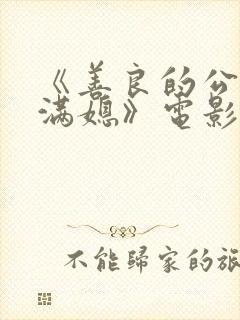 《善良的公
满媳》电影
不能歸家的旅